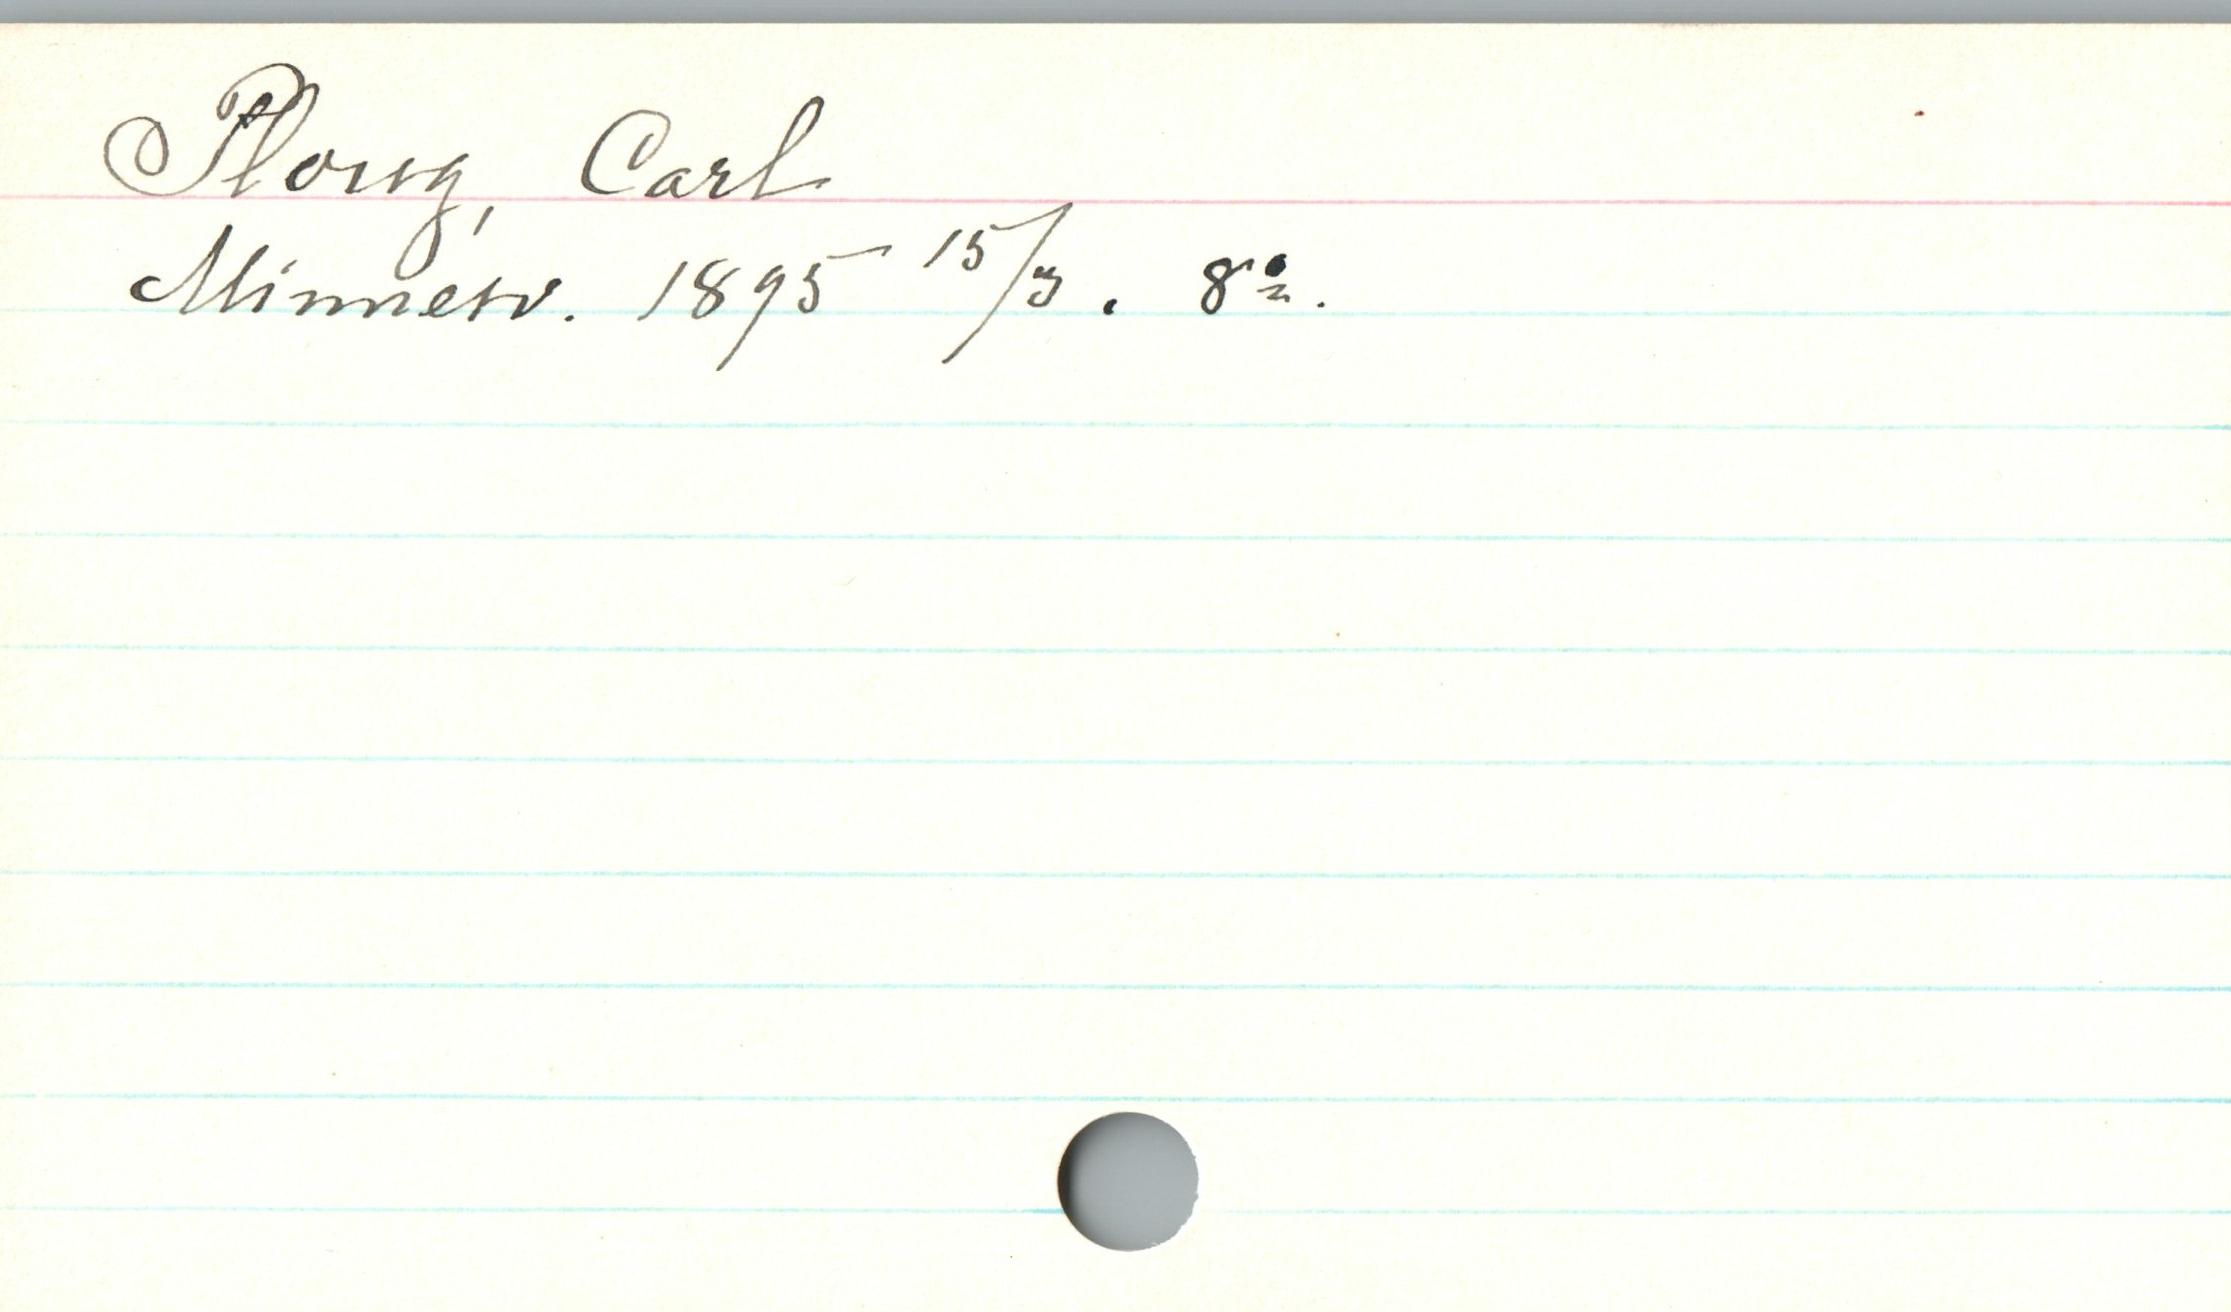 Ploug, Carl
Minnesv. 1895 15/3. 8º.